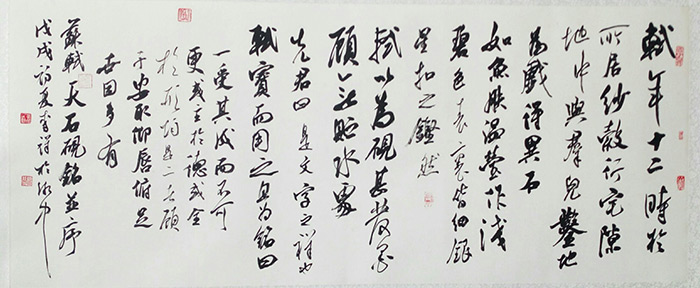 軾年十二時於
所居紗縠行宅隙
地中與羣兒鑿地
為戲得異石
如魚膚溫瑩作淺
碧色表裏皆細銀
星扣之鏗然
試以為硯甚發墨
顧無貯水處
先君曰是文字之祥也
軾寶而用之且為銘曰
一受其成而不可
更或主於德或全
於形均是二者顧
予安取仰唇俯足
世固多有
蘇軾天石硯銘並序
戊戌初夏